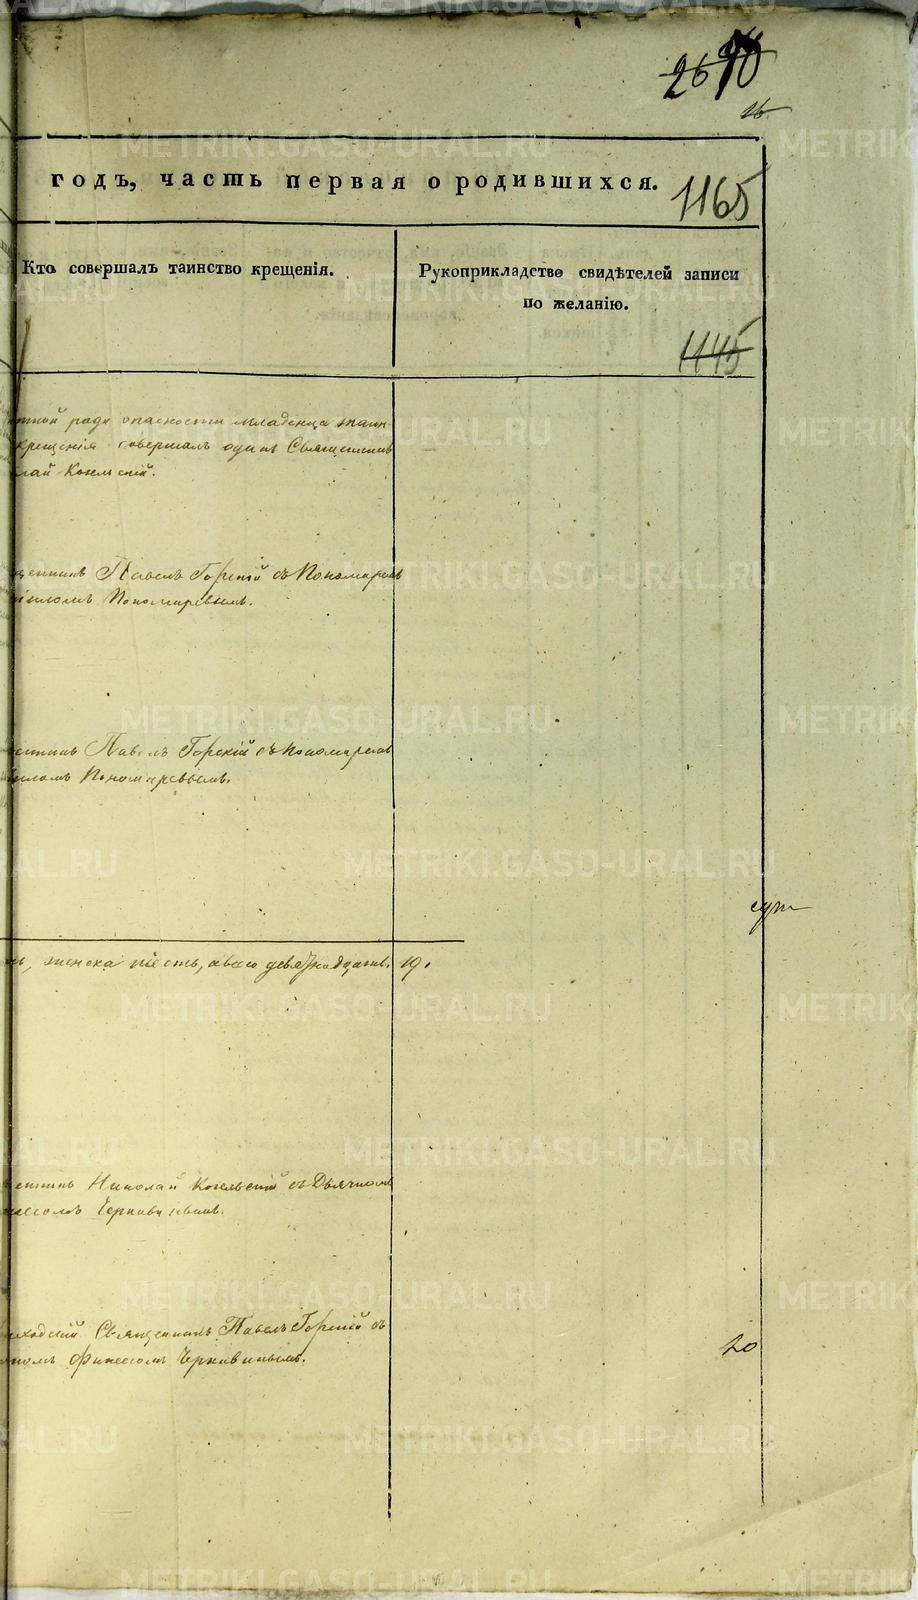 2670
26
годъ, часть первая о родившихся.
1165
Кто совершалъ таинство крещенія.
Рукоприкладство свидѣтелей записи
по желанію.
1145
ради опасности младенца
крещенія совершалъ одинъ Священникъ
лай Косельскій.
щенникъ Павелъ Горскій съ Пономаремъ
иломъ Пономаревымъ.
Павелъ Горскій съ Пономаремъ
иломъ Пономаревымъ.
женска шесть, а всего девятнадцать. 19.
Николай Косельскій съ Дьячкомъ
неесомъ Чернавинымъ.
Священникъ Павелъ Горскій съ
Финеесомъ Чернавинымъ.
20
METRIKI.GASO-URAL.RU